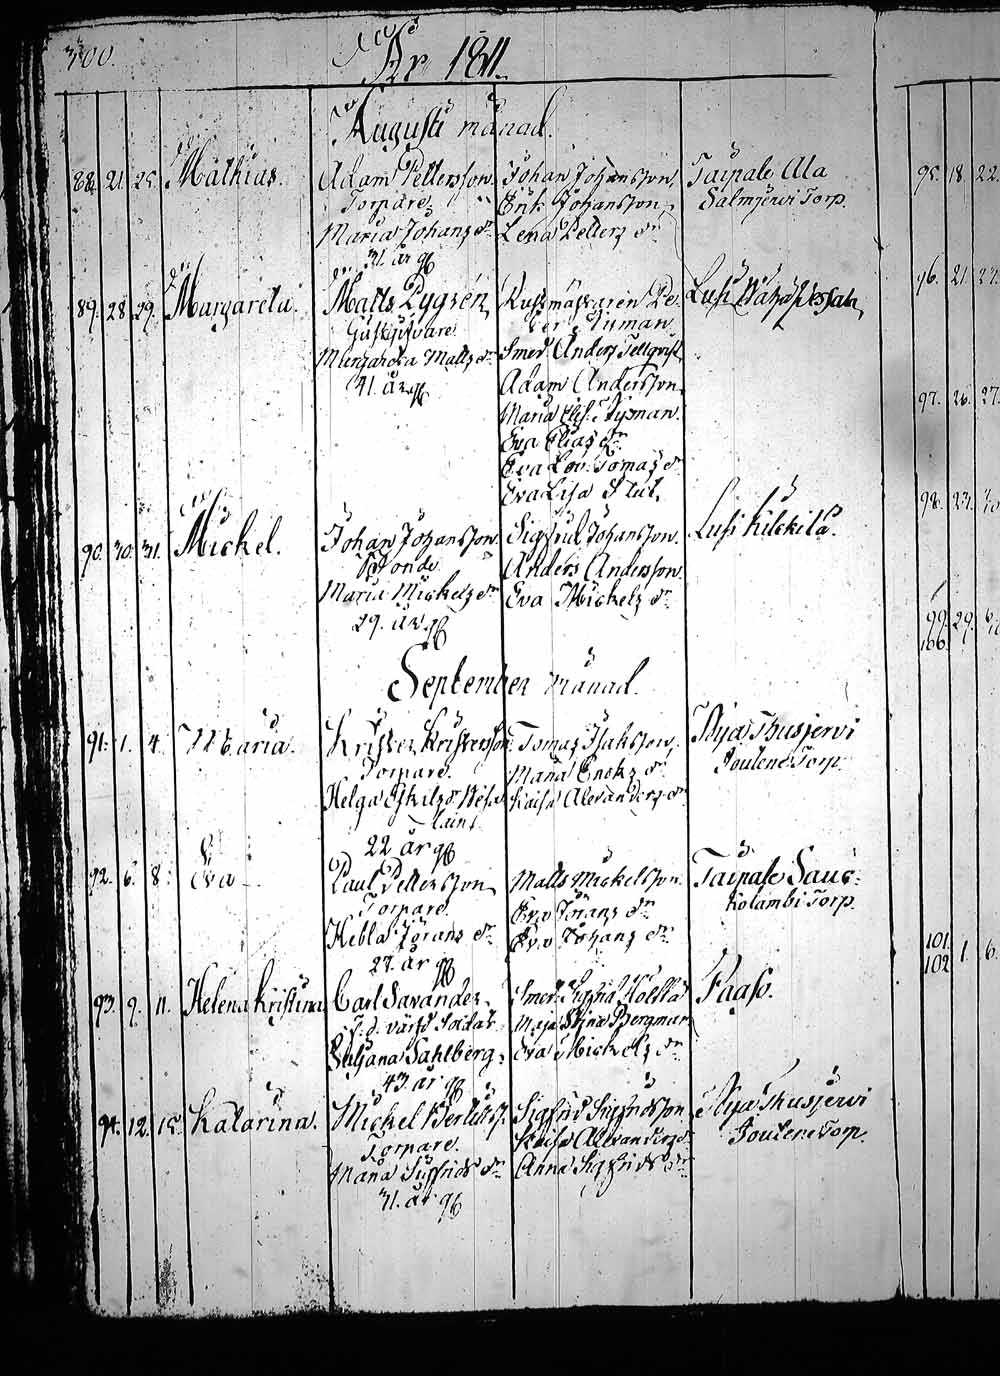 300.
År 1811.
Augusti månad.
88. 21. 25. Mathias. Adam Pettersson Johan Johansson, Taipale Ala
Torpare. Erik Johansson, Salmjervi Torp.
Maria Johans dr Lena Petters dr
31. år
89. 28. 29. Margareta. Matts Ruskmästaren Pe- Lusi
Gästgifvare ter Nyman.
Margareta Matts dr Smed Anders Tellqvist
41. år Adam Andersson
Maria Elis. Nyman.
Eva Elias dr
Eva Lov. Tomas d.
Eva Lisa
90. 30. 31. Mickel. Johan Johansson. Sigfrid Johansson. Lusi Kilckilä.
Bonde Anders Andersson.
Maria Mickels dr Eva Mickels dr
29. år
September månad.
91. 1. 4. Maria. Krister Kristersson Tomas Isaksson, Nya Thusjervi
Torpare. Maria Enoks dr Joutene Torp.
Helga Eskils dr Kaisa Alexanders dr
22 år
92. 6. 8. Eva Paul Pettersson Matts Mickelsson. Taipale Sau-
Torpare. Eva Jörans dr Kolambi Torp.
Hebla Jörans dr Eva Johans dr
27. år
93. 9. 11. Helena Kristina Carl Savander Smed. Sigfrid Paaso.
f. d. värfd Soldat Maja Stina Bergman
Susana Sahlberg. Eva Mickels dr
43. år
94. 12. 15. Katarina. Mickel Bertilss. Sigfrid Sigfridsson Nya Thusjervi
Torpare. Kaisa Alexanders d. Joutene Torp.
Maria Sigfrids dr Anna Sigfrids dr
31. år
95. 18. 22.
96. 21. 23.
97. 26. 27.
98. 27.
99. 29.
100.
101. 1. 6.
102